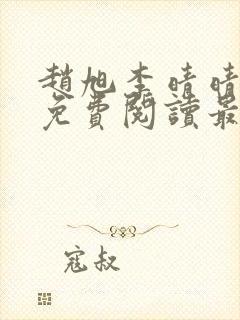 趙旭李晴晴
免費閱讀最
寇叔